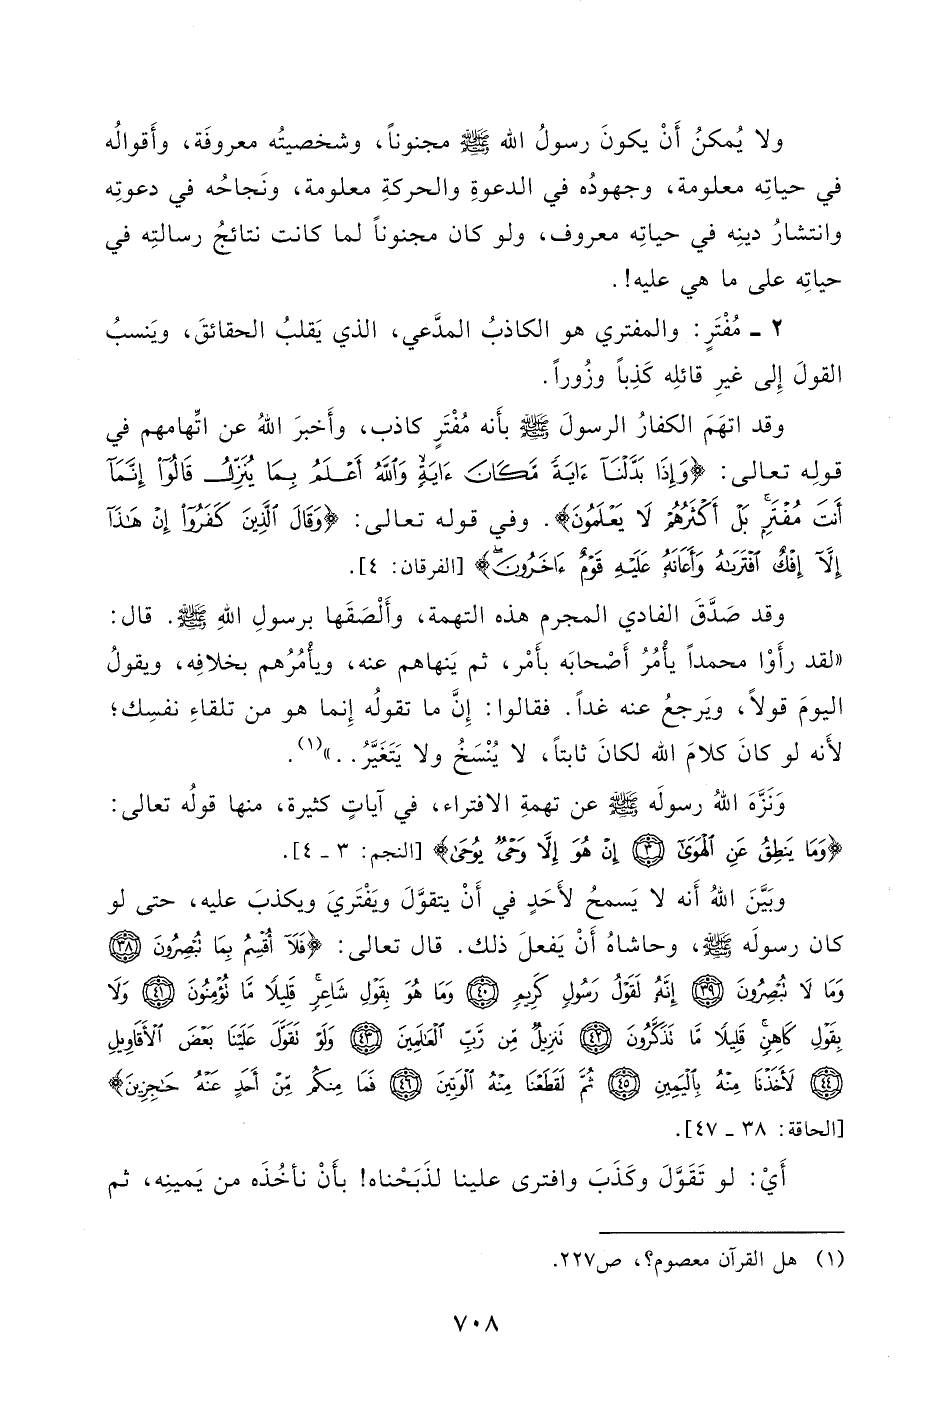 ولا يُمكنُ أَنْ يكونَ رسولُ الله ﷺ مجنوناً، وشخصيتُه معروفَة، وأَقوالُه
في حياتِه معلومة، وجهودُه في الدعوةِ والحركةِ معلومة، ونَجاحُه في دعوتِه
وانتشارُ دينِه في حياتِه معروف، ولو كان مجنوناً لما كانت نتائجُ رسالتِه في
حياتِه على ما هي عليه!.
٢ ـ مُفْتَرٍ: والمفتري هو الكاذبُ المدَّعي، الذي يَقلبُ الحقائقَ، ويَنسبُ
القولَ إِلى غيرِ قائلِه كَذِباً وزُوراً.
وقد اتهَمَ الكفارُ الرسولَ ﷺ بأَنه مُفْتَرٍ كاذب، وأَخبرَ اللهُ عن اتِّهامهم في
قولِه تعالى: ﴿وَإِذَا بَدَّلْنَآ ءَايَةً مَّكَانَ ءَايَةٍ وَٱللَّهُ أَعْلَمُ بِمَا يُنَزِّلُ قَالُوٓا۟ إِنَّمَآ
أَنتَ مُفْتَرٍۭ بَلْ أَكْثَرُهُمْ لَا يَعْلَمُونَ﴾. وفي قوله تعالى: ﴿وَقَالَ ٱلَّذِينَ كَفَرُوٓا۟ إِنْ هَٰذَآ
إِلَّآ إِفْكٌ ٱفْتَرَىٰهُ وَأَعَانَهُۥ عَلَيْهِ قَوْمٌ ءَاخَرُونَ ۖ﴾ [الفرقان: ٤].
وقد صَدَّقَ الفادي المجرم هذه التهمة، وأَلْصَقَها برسولِ اللهِ ﷺ. قال:
«لقد رأَوْا محمداً يأْمُرُ أَصْحابَه بأَمْر، ثم يَنهاهم عنه، ويأْمُرُهم بخلافِه، ويقولُ
اليومَ قولاً، ويَرجعُ عنه غداً. فقالوا: إِنَّ ما تقولُه إِنما هو من تلقاءِ نفسِك؛
لأَنه لو كانَ كلامَ الله لكانَ ثابتاً، لا يُنْسَخُ ولا يَتَغَيَّرُ..»(١).
ونَزَّهَ اللهُ رسولَه ﷺ عن تهمةِ الافتراء، في آياتٍ كثيرة، منها قولُه تعالى:
﴿وَمَا يَنطِقُ عَنِ ٱلْهَوَىٰٓ ﴿٣﴾ إِنْ هُوَ إِلَّا وَحْىٌ يُوحَىٰ﴾ [النجم: ٣ ـ ٤].
وبَيَّنَ اللهُ أَنه لا يَسمحُ لأَحَدٍ في أَنْ يتقوَّلَ ويَفْتَريَ ويكذبَ عليه، حتى لو
كان رسولَه ﷺ، وحاشاهُ أَنْ يَفعلَ ذلك. قال تعالى: ﴿فَلَآ أُقْسِمُ بِمَا تُبْصِرُونَ ﴿٣٨﴾
وَمَا لَا تُبْصِرُونَ ﴿٣٩﴾ إِنَّهُۥ لَقَوْلُ رَسُولٍ كَرِيمٍ ﴿٤٠﴾ وَمَا هُوَ بِقَوْلِ شَاعِرٍ ۚ قَلِيلًا مَّا تُؤْمِنُونَ ﴿٤١﴾ وَلَا
بِقَوْلِ كَاهِنٍ ۚ قَلِيلًا مَّا تَذَكَّرُونَ ﴿٤٢﴾ تَنزِيلٌ مِّن رَّبِّ ٱلْعَٰلَمِينَ ﴿٤٣﴾ وَلَوْ تَقَوَّلَ عَلَيْنَا بَعْضَ ٱلْأَقَاوِيلِ
﴿٤٤﴾ لَأَخَذْنَا مِنْهُ بِٱلْيَمِينِ ﴿٤٥﴾ ثُمَّ لَقَطَعْنَا مِنْهُ ٱلْوَتِينَ ﴿٤٦﴾ فَمَا مِنكُم مِّنْ أَحَدٍ عَنْهُ حَٰجِزِينَ﴾
[الحاقة: ٣٨ ـ ٤٧].
أَيْ: لو تَقَوَّلَ وكَذَبَ وافترى علينا لذَبَحْناه! بأَنْ نأخُذَه من يَمينِه، ثم
(١) هل القرآن معصوم؟، ص٢٢٧.
٧٠٨